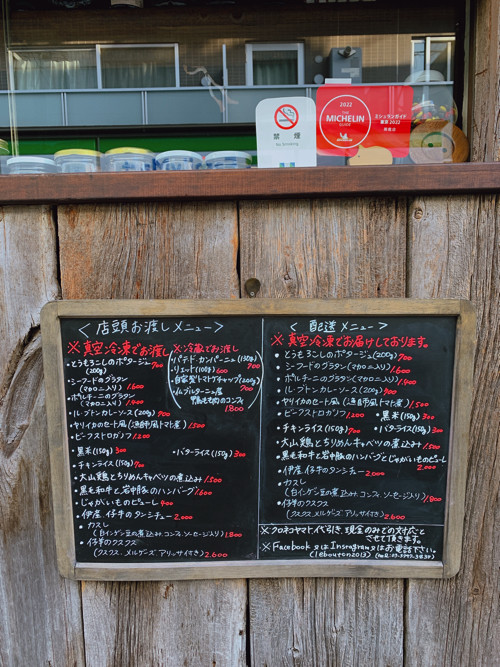 禁煙
No Smoking
2022
THE
MICHELIN
GUIDE
2022
ミシュランガイド
東京 2022
掲載店
＜店頭お渡しメニュー＞
※真空冷凍でお渡し
・とうもろこしのポタージュ 700
(200g)
・シーフードのグラタン
(マカロニ入り) 1.600
・ポルチーニのグラタン
(マカロニ入り) 1.400
・ル・ブトンカレーソース(200g) 900
・ヤリイカのセート風(漁師風トマト煮) 1.500
・ビーフストロガノフ 1.200
・黒米(150g) 300
・バターライス(150g) 300
・チキンライス(150g) 700
・大山鶏とちりめんキャベツの煮込み 1.500
・黒毛和牛と岩中豚のハンバーグ 1.600
・じゃがいものピューレ 400
・伊産仔牛のタンシチュー 2.000
・カスレ
(白インゲン豆の煮込み、コンフィ、ソーセージ入り) 1.800
・仔羊のクスクス
(クスクス、メルゲーズ、アリッサ付き) 2.600
※冷蔵でお渡し
・パテ・ド・カンパーニュ(130g) 700
・リエット(100g) 600
・自家製トマトケチャップ(200g) 700
・ブルターニュ産
鴨もも肉のコンフィ
1.800
＜配送メニュー＞
※真空冷凍でお届けしております。
・とうもろこしのポタージュ(200g) 700
・シーフードのグラタン(マカロニ入り) 1.600
・ポルチーニのグラタン(マカロニ入り) 1.400
・ル・ブトンカレーソース(200g) 900
・ヤリイカのセート風(漁師風トマト煮) 1.500
・ビーフストロガノフ 1.200 ・黒米(150g) 300
・チキンライス(150g) 700 ・バターライス(150g) 300
・大山鶏とちりめんキャベツの煮込み 1.500
・黒毛和牛と岩中豚のハンバーグとじゃがいものピューレ
2.000
・伊産仔牛のタンシチュー 2.000
・カスレ
(白インゲン豆の煮込み、コンフィ、ソーセージ入り) 1.800
・仔羊のクスクス
(クスクス、メルゲーズ、アリッサ付き) 2.600
※クロネコヤマト、代引き、現金のみでの対応と
させて頂きます。
※Facebook又はInstagram又はお電話下さい。
(lebouton2013)